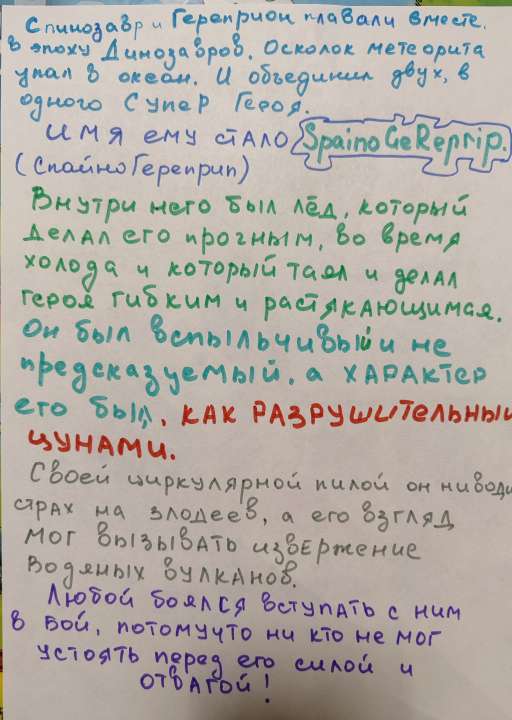 Спинозавр и Гереприон плавали вместе.
в эпоху Динозавров. Осколок метеорита
упал в океан. И объединил двух, в
одного Супер Героя.
имя ему стало SpainoGeReprip.
(СпайноГереприп)
Внутри него был лёд, который
делал его прочным, во время
холода и который таял и делал
героя гибким и растякающимая.
Он был вспыльчивый и не
предсказуемый, а ХАРАКТЕР
его был, КАК РАЗРУШИТЕЛЬНЫЙ
ЦУНАМИ.
Своей циркулярной пилой он ниводи
страх на злодеев, а его взгляд
мог вызывать извержение
водяных вулканов.
Любой боялся вступать с ним
в бой, потомучто ни кто не мог
устоять перед его силой и
отвагой!